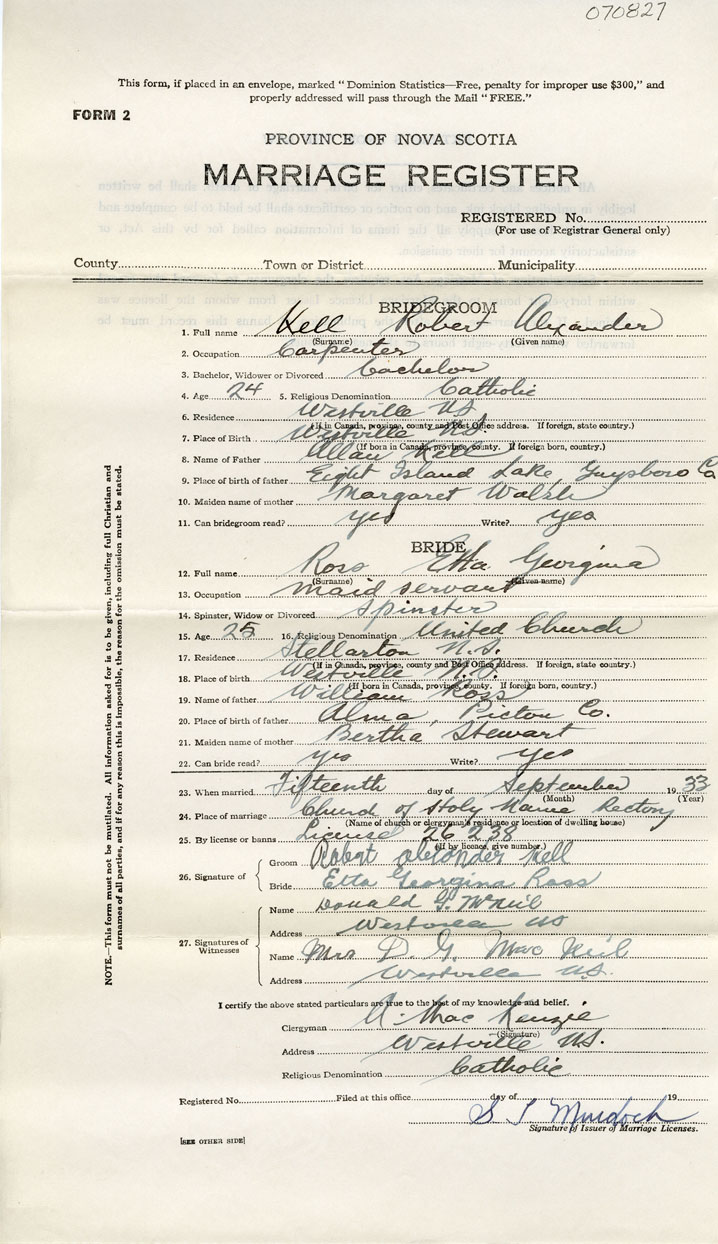 070827
This form, if placed in an envelope, marked "Dominion Statistics—Free, penalty for improper use $300," and
properly addressed will pass through the Mail "FREE."
FORM 2
PROVINCE OF NOVA SCOTIA
MARRIAGE REGISTER
REGISTERED No.
(For use of Registrar General only)
County Town or District Municipality
BRIDEGROOM
1. Full name Kell Robert Alexander
(Surname) (Given name)
2. Occupation Carpenter
3. Bachelor, Widower or Divorced Bachelor
4. Age 24 5. Religious Denomination Catholic
6. Residence Westville NS
(If in Canada, province, county and Post Office address. If foreign, state country.)
7. Place of Birth Westville N.S.
(If born in Canada, province, county. If foreign born, country.)
8. Name of Father Allan Kell
9. Place of birth of father Eight Island Lake, Guysboro Co
10. Maiden name of mother Margaret Walsh
11. Can bridegroom read? yes Write? yes
BRIDE
12. Full name Ross Etta Georgina
(Surname) (Given name)
13. Occupation maid servant
14. Spinster, Widow or Divorced spinster
15. Age 25 16. Religious Denomination United Church
17. Residence Stellarton N.S.
(If in Canada, province, county and Post Office address. If foreign, state country.)
18. Place of birth Westville N.S.
(If born in Canada, province, county. If foreign born, country.)
19. Name of father William Ross
20. Place of birth of father Alma, Pictou Co.
21. Maiden name of mother Bertha Stewart
22. Can bride read? yes Write? yes
23. When married Fifteenth day of September 1933
(Month) (Year)
24. Place of marriage Church of Holy Name Rectory
(Name of church or clergyman's residence or location of dwelling house)
25. By license or banns License 26238
(If by licence, give number.)
26. Signature of
Groom Robert Alexander Kell
Bride Etta Georgina Ross
27. Signatures of Witnesses
Name Donald G. McNeil
Address Westville NS
Name Mrs D. G. MacNeil
Address Westville N.S.
I certify the above stated particulars are true to the best of my knowledge and belief.
Clergyman A. MacKenzie
(Signature)
Address Westville NS.
Religious Denomination Catholic
Registered No. Filed at this office day of 19
S. T Murdoch
Signature of Issuer of Marriage Licenses.
[SEE OTHER SIDE]
NOTE.—This form must not be mutilated. All information asked for is to be given, including full Christian and
surnames of all parties, and if for any reason this is impossible, the reason for the omission must be stated.